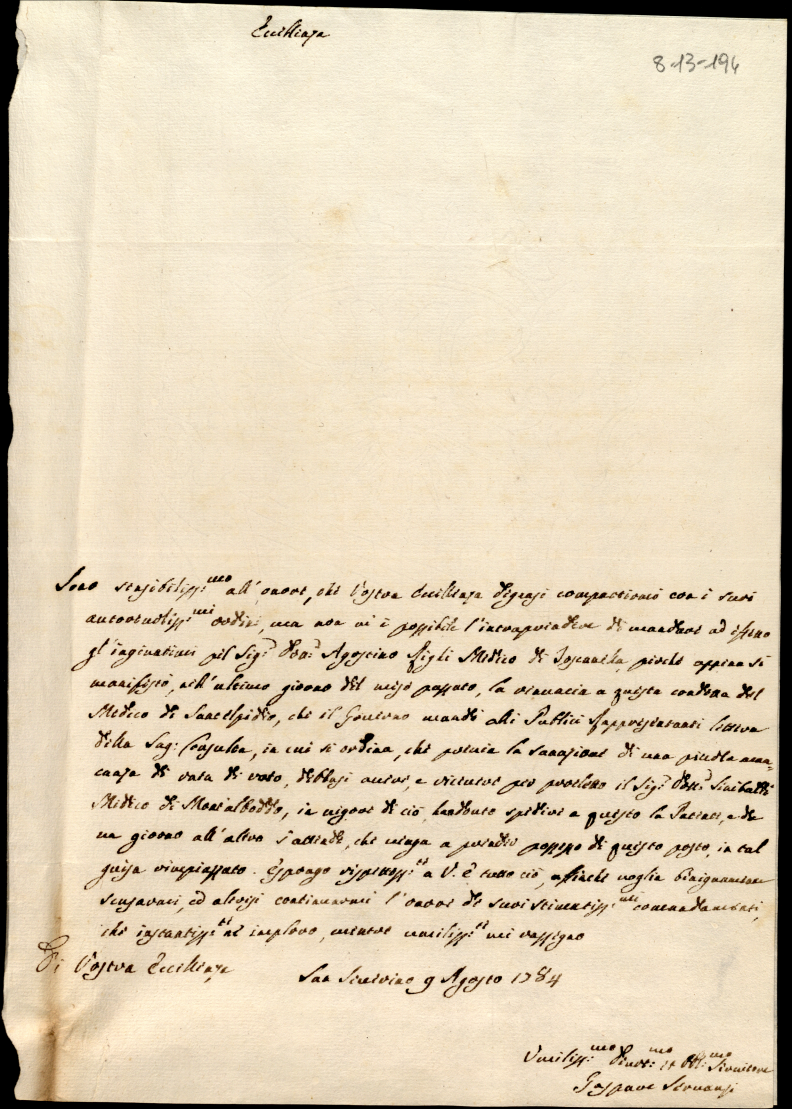 Eccellenza
8-13-194
Sono sensibiliss:mo all'onore, che Vostra Eccellenza degnasi compartirmi con i suoi
autorevoliss:mi ordini, ma non mi è possibile l'intraprendere di mandare ad effetto
gl'ingiuntimi pel Sig:r Dott:r Agostino Figli Medico di Toscanella, poiché appena si
manifestò, nell'ultimo giorno del mese passato, la rinuncia a questa condotta del
Medico di Santelpidio, che il Governo mandò alli Publici Rappresentanti lettera
della Sag: Consulta, in cui si ordina, che previa la sanazione di una piccola man-
canza di rata di voto, debbasi avere, e ritenere per prescelto il Sig:r Dott:r Sinibaldi
Medico di Montalboddo, in vigore di ciò, han dovuto spedire a questo la Patente, e da
un giorno all'altro s'attende, che venga a prender possesso di questo posto, in tal
guisa rimpiazzato. Espongo rispettoss:te a V. E. tutto ciò, affinché voglia benignamente
scusarmi, ed altresì continuarmi l'onore de suoi stimatiss:mi comandamenti,
che instantiss:te ne imploro, mentre umiliss:te mi rassegno
Di Vostra Eccellenza San Severino 9 Agosto 1784
Umiliss:mo Divot:mo et Obl:mo Servitore
Gaspare Servanzi